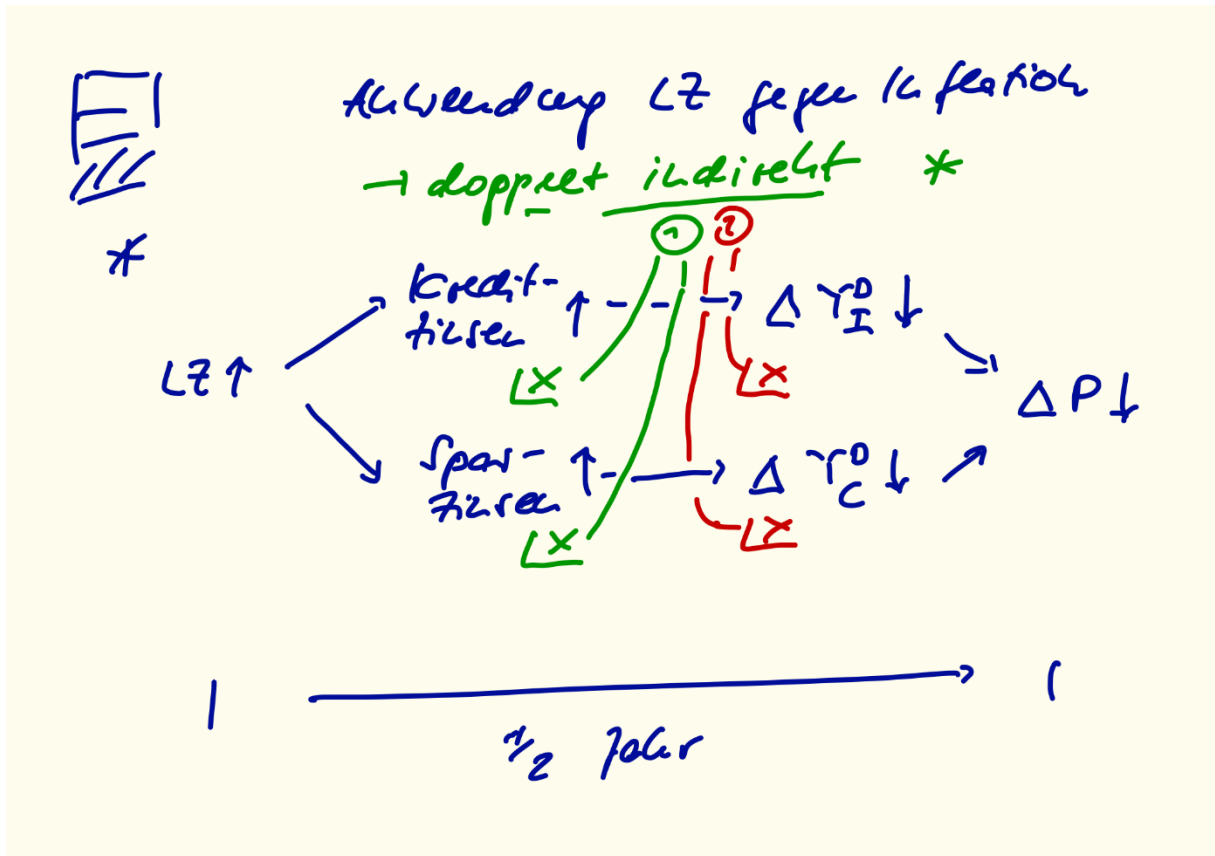 Anwendung LZ gegen Inflation
→ doppelt indirekt *
*
1 2
Kredit-
zinsen ↑ → Δ Y^D_I ↓
LZ ↑
Δ P ↓
Spar-
zinsen ↑ → Δ Y^D_C ↓
1/2 Jahr